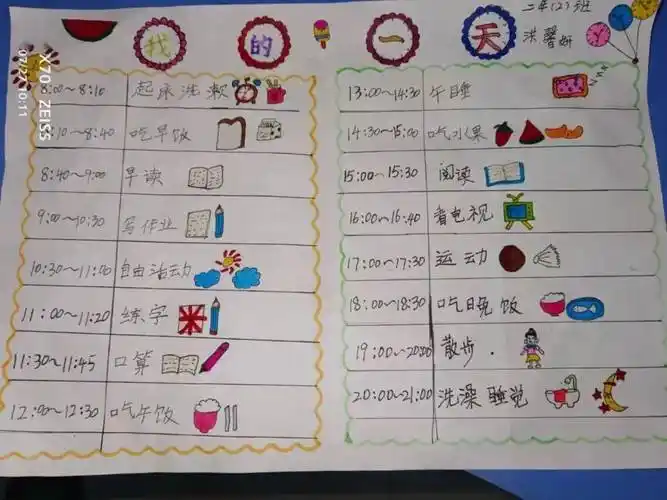 我的一天
二年(2)班
洪馨妍
8:00~8:10 起床洗漱
8:10~8:40 吃早饭
8:40~9:00 早读
9:00~10:30 写作业
10:30~11:00 自由活动
11:00~11:20 练字
11:30~11:45 口算
12:00~12:30 吃午饭
13:00~14:30 午睡
14:30~15:00 吃水果
15:00~15:30 阅读
16:00~16:40 看电视
17:00~17:30 运动
18:00~18:30 吃晚饭
19:00~20:00 散步.
20:00~21:00 洗澡 睡觉
X70 ZEISS
07/27 10:11